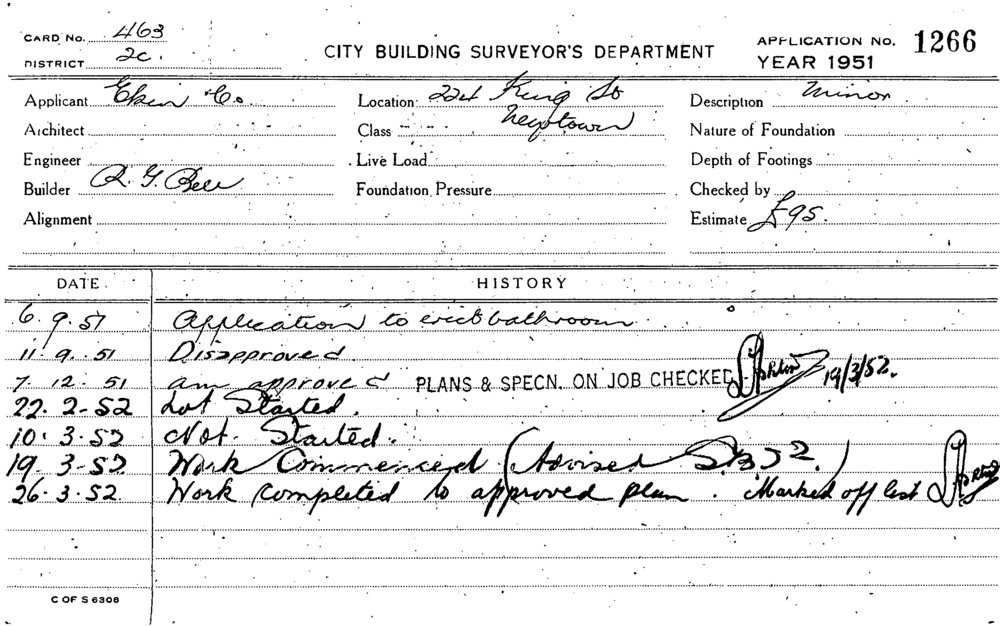 CARD No. 463
DISTRICT 2c.
CITY BUILDING SURVEYOR'S DEPARTMENT
APPLICATION No. 1266
YEAR 1951
Applicant Ekin & Co.
Location 224 King St
Newtown
Description Minor
Architect
Class
Nature of Foundation
Engineer
Live Load
Depth of Footings
Builder R. G. Bell
Foundation Pressure
Checked by
Alignment
Estimate £95.
DATE
HISTORY
6.9.51 Application to erect bathroom
11.9.51 Disapproved.
7.12.51 am approved PLANS & SPECN. ON JOB CHECKED 19/3/52.
22.2-52 Not Started.
10.3-52 Not Started.
19.3-52 Work Commenced (Advised
26.3.52 Work completed to approved plan. Marked off list
C OF S 6308